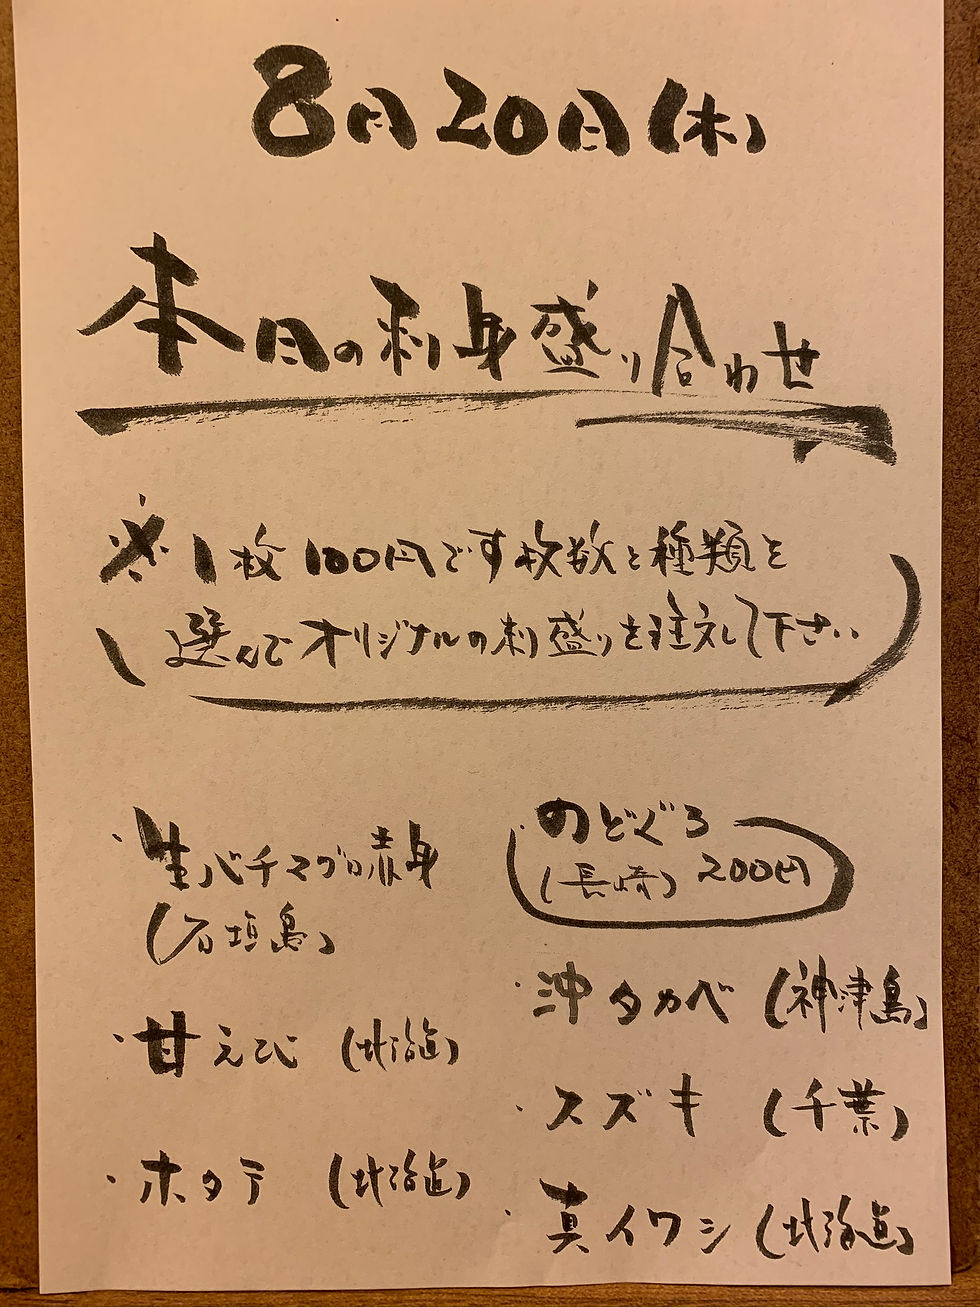 8月20日(木)
本日の刺身盛り合わせ
※1枚100円です枚数と種類を
選んでオリジナルの刺盛りを注文して下さい
・生バチマグロ赤身
(石垣島)
・甘えび (北海道)
・ホタテ (北海道)
・のどぐろ
(長崎) 200円
・沖タカベ (神津島)
・スズキ (千葉)
・真イワシ (北海道)